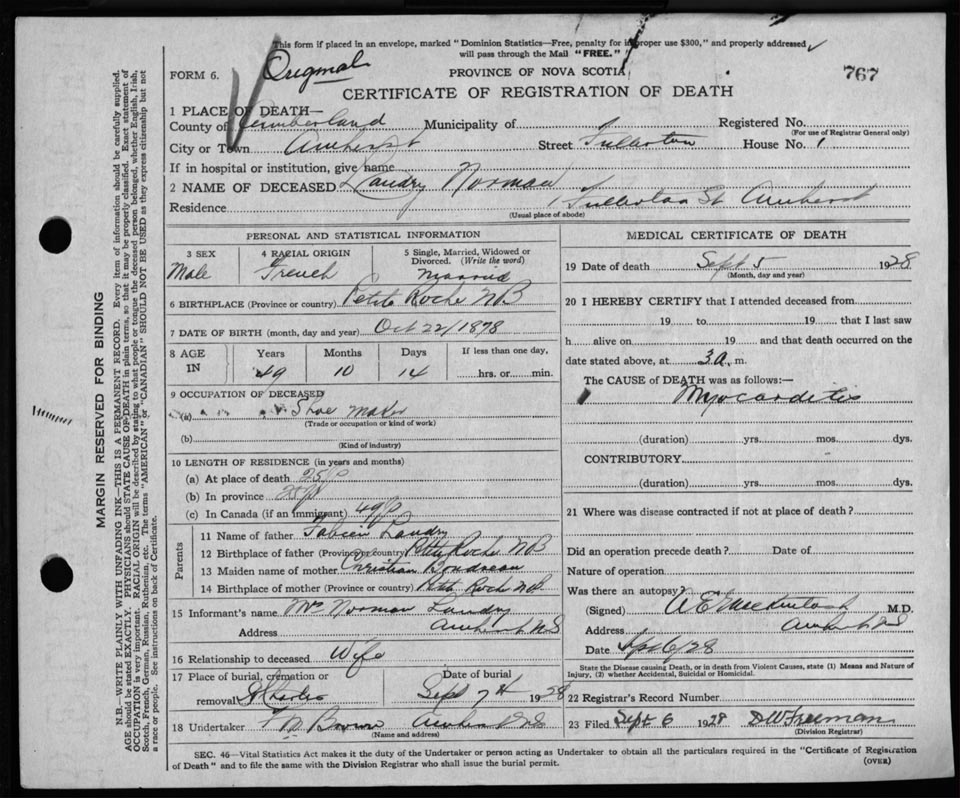 This form if placed in an envelope, marked "Dominion Statistics—Free, penalty for improper use $300," and properly addressed
will pass through the Mail "FREE."
Original
FORM 6.
PROVINCE OF NOVA SCOTIA
767
CERTIFICATE OF REGISTRATION OF DEATH
1 PLACE OF DEATH—
County of Cumberland Municipality of Registered No.
(For use of Registrar General only)
City or Town Amherst Street Fullerton House No. 1
If in hospital or institution, give name
2 NAME OF DECEASED Landry Norman
Residence 1 Fullerton St Amherst
(Usual place of abode)
PERSONAL AND STATISTICAL INFORMATION
3 SEX 4 RACIAL ORIGIN 5 Single, Married, Widowed or
Divorced. (Write the word)
Male French Married
6 BIRTHPLACE (Province or country) Petite Roche NB
7 DATE OF BIRTH (month, day and year) Oct 22/1878
8 AGE IN Years Months Days If less than one day,
49 10 14 hrs. or min.
9 OCCUPATION OF DECEASED
(a) Shoe Maker
(Trade or occupation or kind of work)
(b)
(Kind of industry)
10 LENGTH OF RESIDENCE (in years and months)
(a) At place of death 25
(b) In province
(c) In Canada (if an immigrant) 49
Parents
11 Name of father Fabien Landry
12 Birthplace of father (Province or country) Petite Roche NB
13 Maiden name of mother Christian Boudreau
14 Birthplace of mother (Province or country) Petite Roche NB
15 Informant's name Mrs Norman Landry
Address Amherst NS
16 Relationship to deceased Wife
17 Place of burial, cremation or Date of burial
removal St Charles Sept 7th 1928
18 Undertaker Brown Amherst NS
(Name and address)
MEDICAL CERTIFICATE OF DEATH
19 Date of death Sept 5 1928
(Month, day and year)
20 I HEREBY CERTIFY that I attended deceased from
19 to 19 that I last saw
h alive on 19 and that death occurred on the
date stated above, at 3 a. m.
The CAUSE of DEATH was as follows:—
Myocarditis
(duration) yrs. mos. dys.
CONTRIBUTORY
(duration) yrs. mos. dys.
21 Where was disease contracted if not at place of death?
Did an operation precede death? Date of
Nature of operation
Was there an autopsy?
(Signed) A E Mackintosh M.D.
Address Amherst NS
Date Sept 6/28
State the Disease causing Death, or in death from Violent Causes, state (1) Means and Nature of
Injury, (2) whether Accidental, Suicidal or Homicidal.
22 Registrar's Record Number
23 Filed Sept 6 1928 DW Freeman
(Division Registrar)
SEC. 46—Vital Statistics Act makes it the duty of the Undertaker or person acting as Undertaker to obtain all the particulars required in the "Certificate of Registration
of Death" and to file the same with the Division Registrar who shall issue the burial permit.
(OVER)
MARGIN RESERVED FOR BINDING
N.B.—WRITE PLAINLY WITH UNFADING INK—THIS IS A PERMANENT RECORD. Every item of information should be carefully supplied.
AGE should be stated EXACTLY. PHYSICIANS should STATE CAUSE OF DEATH in plain terms, so that it may be properly classified. Exact statement of
OCCUPATION is very important. RACIAL ORIGIN will be described by stating to what people or tongue the deceased person belonged, whether English, Irish,
Scotch, French, German, Russian, Ruthenian, etc. The terms "AMERICAN" or "CANADIAN" SHOULD NOT BE USED as they express citizenship but not
a race or people. See instructions on back of Certificate.